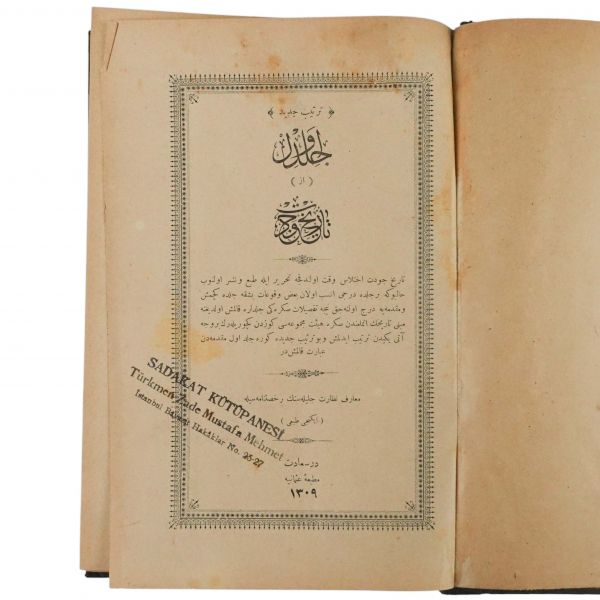 ﴿ ترتیب جدید ﴾
جلد اول
( از )
تاریخ جودت
تاریخ جودت اختلاس وقت اولندقجه تحریر ایله طبع و نشر اولنوب
حالبوکه بر جلده درجی انسب اولان بعض وقوعات بشقه جلده کچمش
و مقدمه یه درج اوله جق نیجه تفصیلات صکره کی جلدلره قالمش اولدیغنه
مبنی تاریخك اتمامندن صکره هیئت مجموعه سی کوزدن کچوریله رك بروجه
آتی یکیدن ترتیب ایدلمش وبو ترتیب جدیده کوره جلد اول مقدمه دن
عبارت قالمشدر
معارف نظارت جلیله سنك رخصتنامه سیله
( ایکنجی طبعی )
درسعادت
مطبعهٔ عثمانیه
۱۳۰۹
SADAKAT KÜTÜPANESİ
Türkmen Zade Mustafa Mehmet
İstanbul Bayazıt Hakkâklar No. 25-27